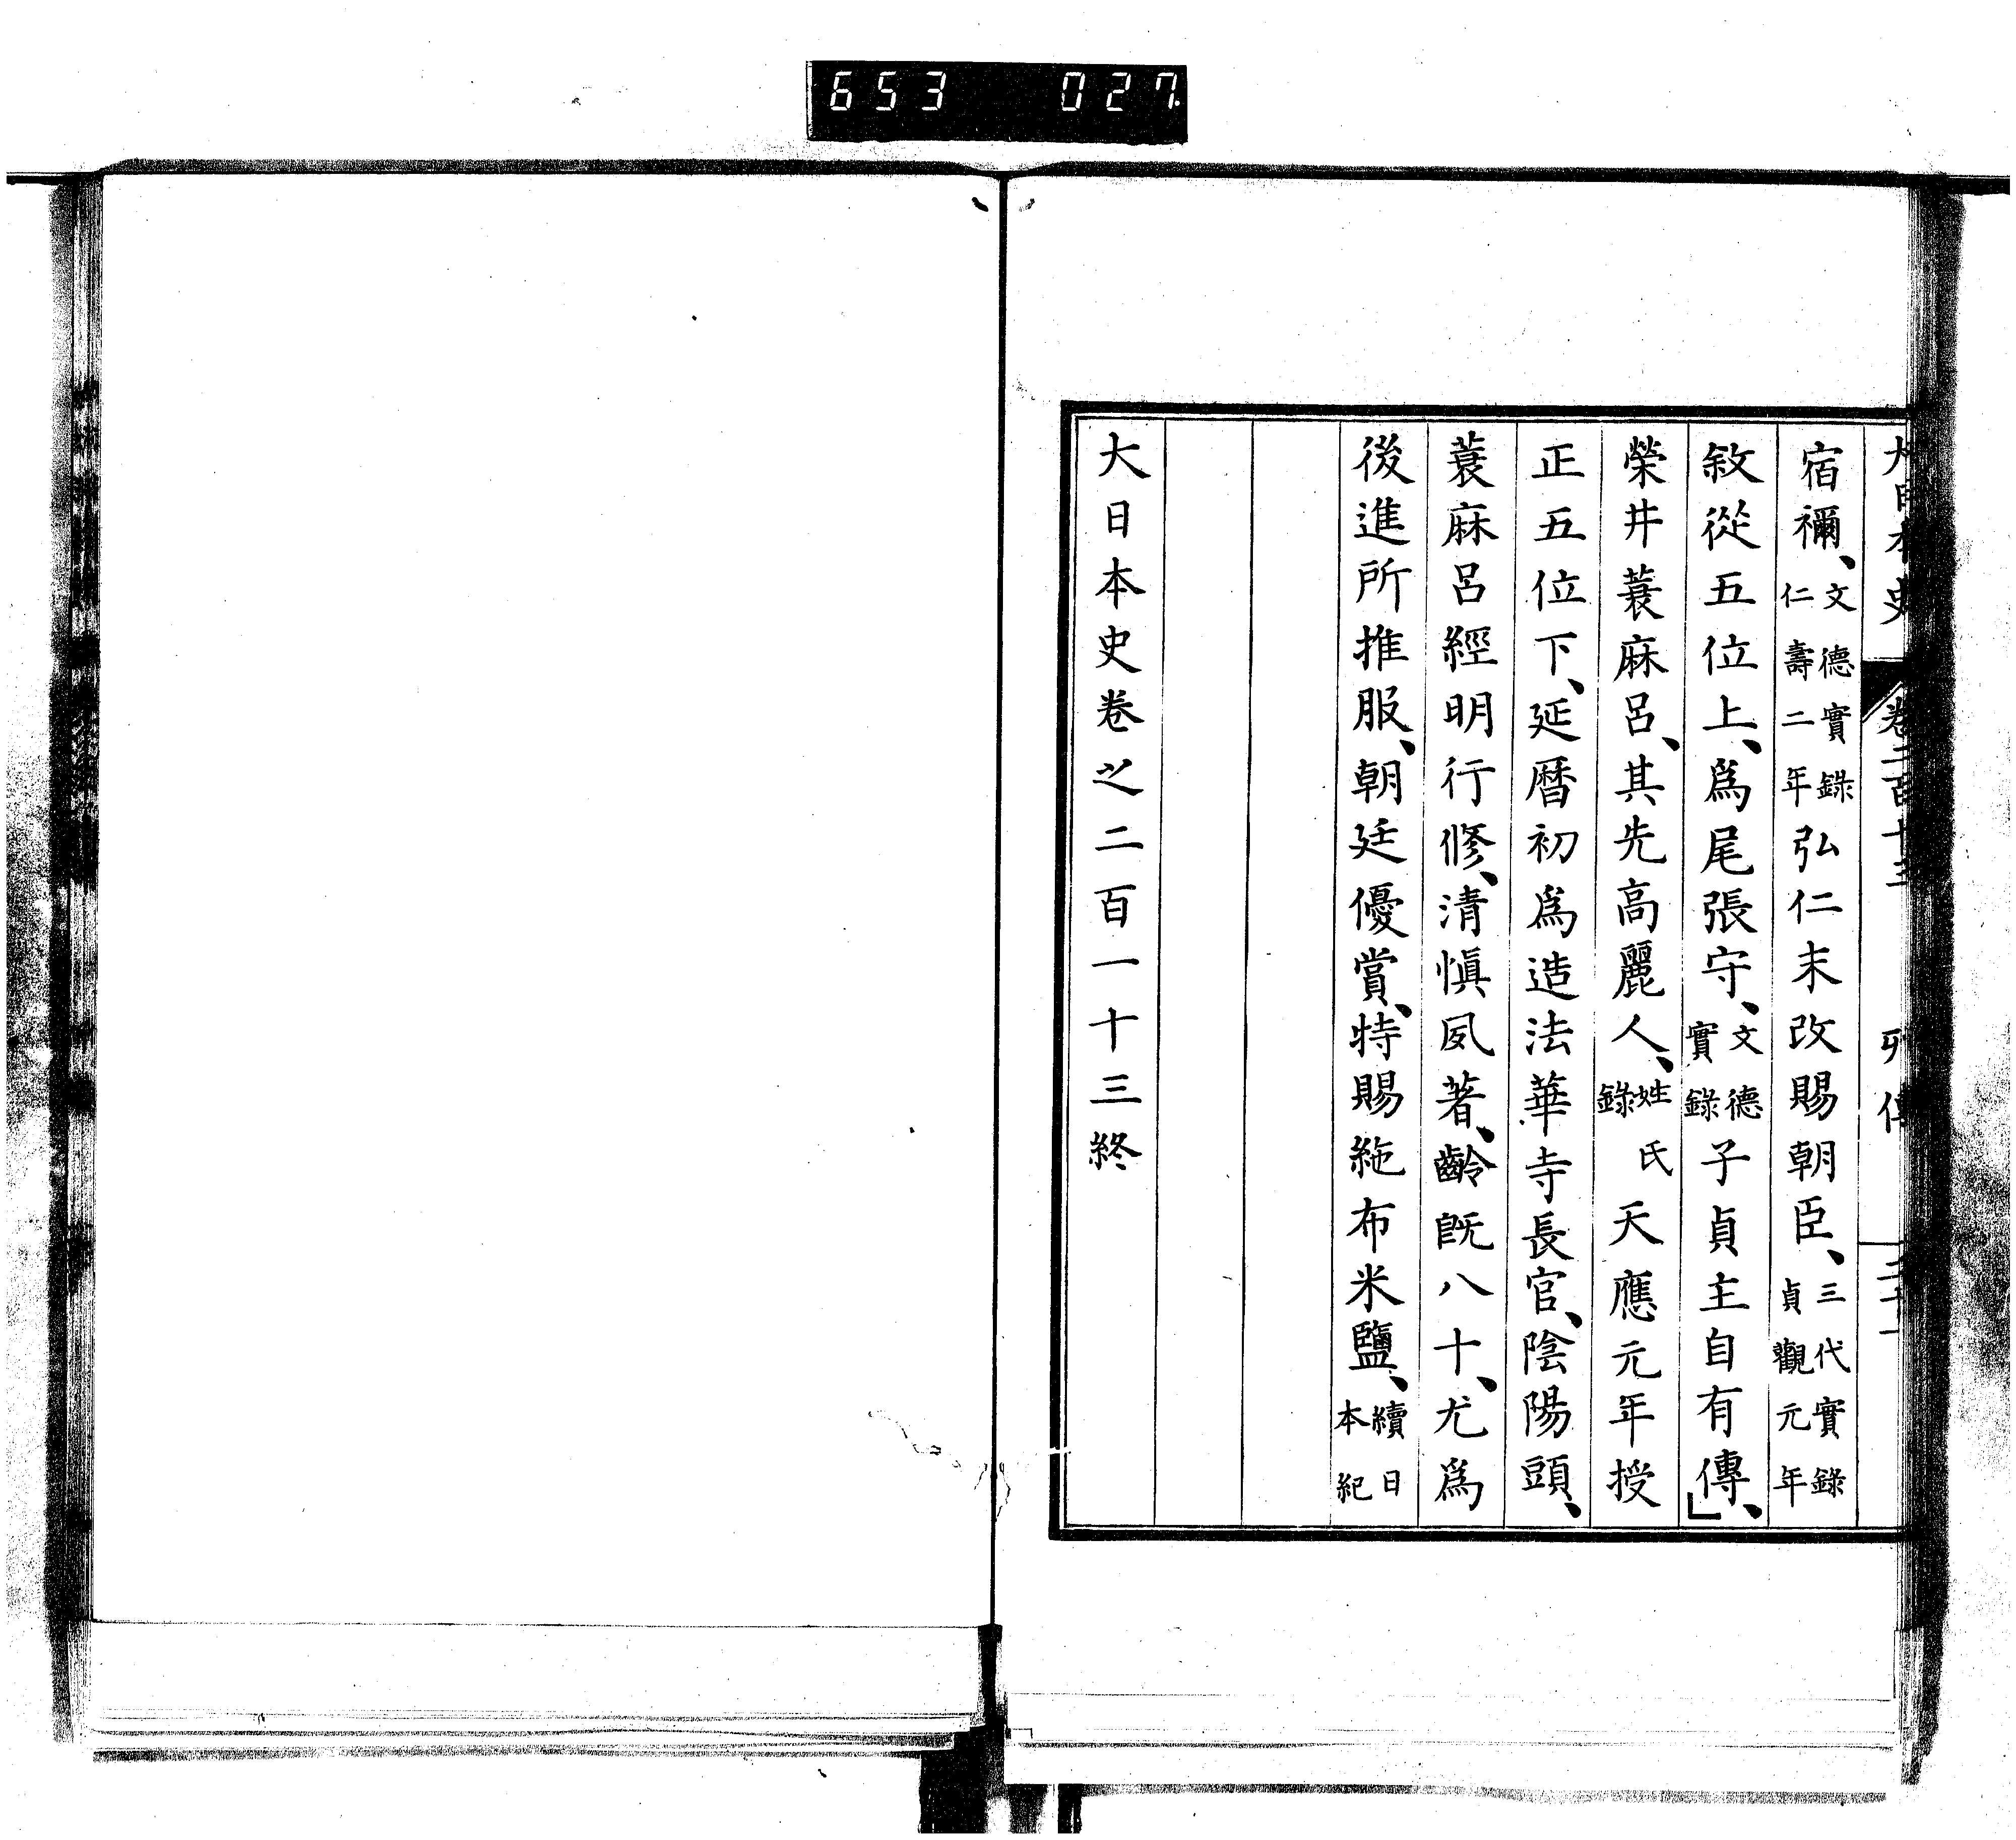 653 027
大日本史 卷二百十三 列傳 二十一
宿禰、文德實錄仁壽二年弘仁末改賜朝臣、三代實錄貞觀元年
敘從五位上、爲尾張守、文德實錄子貞主自有傳、」
榮井蓑麻呂、其先高麗人、姓氏錄天應元年授
正五位下、延曆初爲造法華寺長官、陰陽頭、
蓑麻呂經明行修、清愼夙著、齡旣八十、尤爲
後進所推服、朝廷優賞、特賜絁布米鹽、續日本紀
大日本史卷之二百一十三終